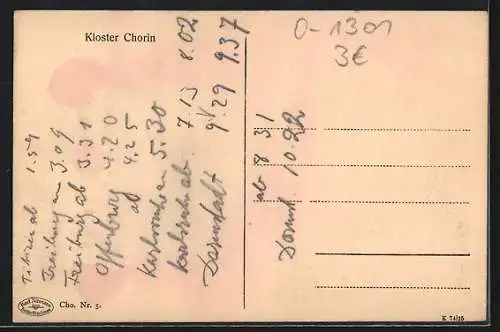 Kloster Chorin
0-1301
3€
Titisee ab 1.59
Freiburg an 3.09
Freiburg ab 3.31
Offenburg 4.20
ab 4.25
Karlsruhe an 5.30
Karlsruhe ab 7.13 8.02
Darmstadt 9.29 9.37
ab 8 31
Darmst. 10.22
Cho. Nr. 5.
K 74/26